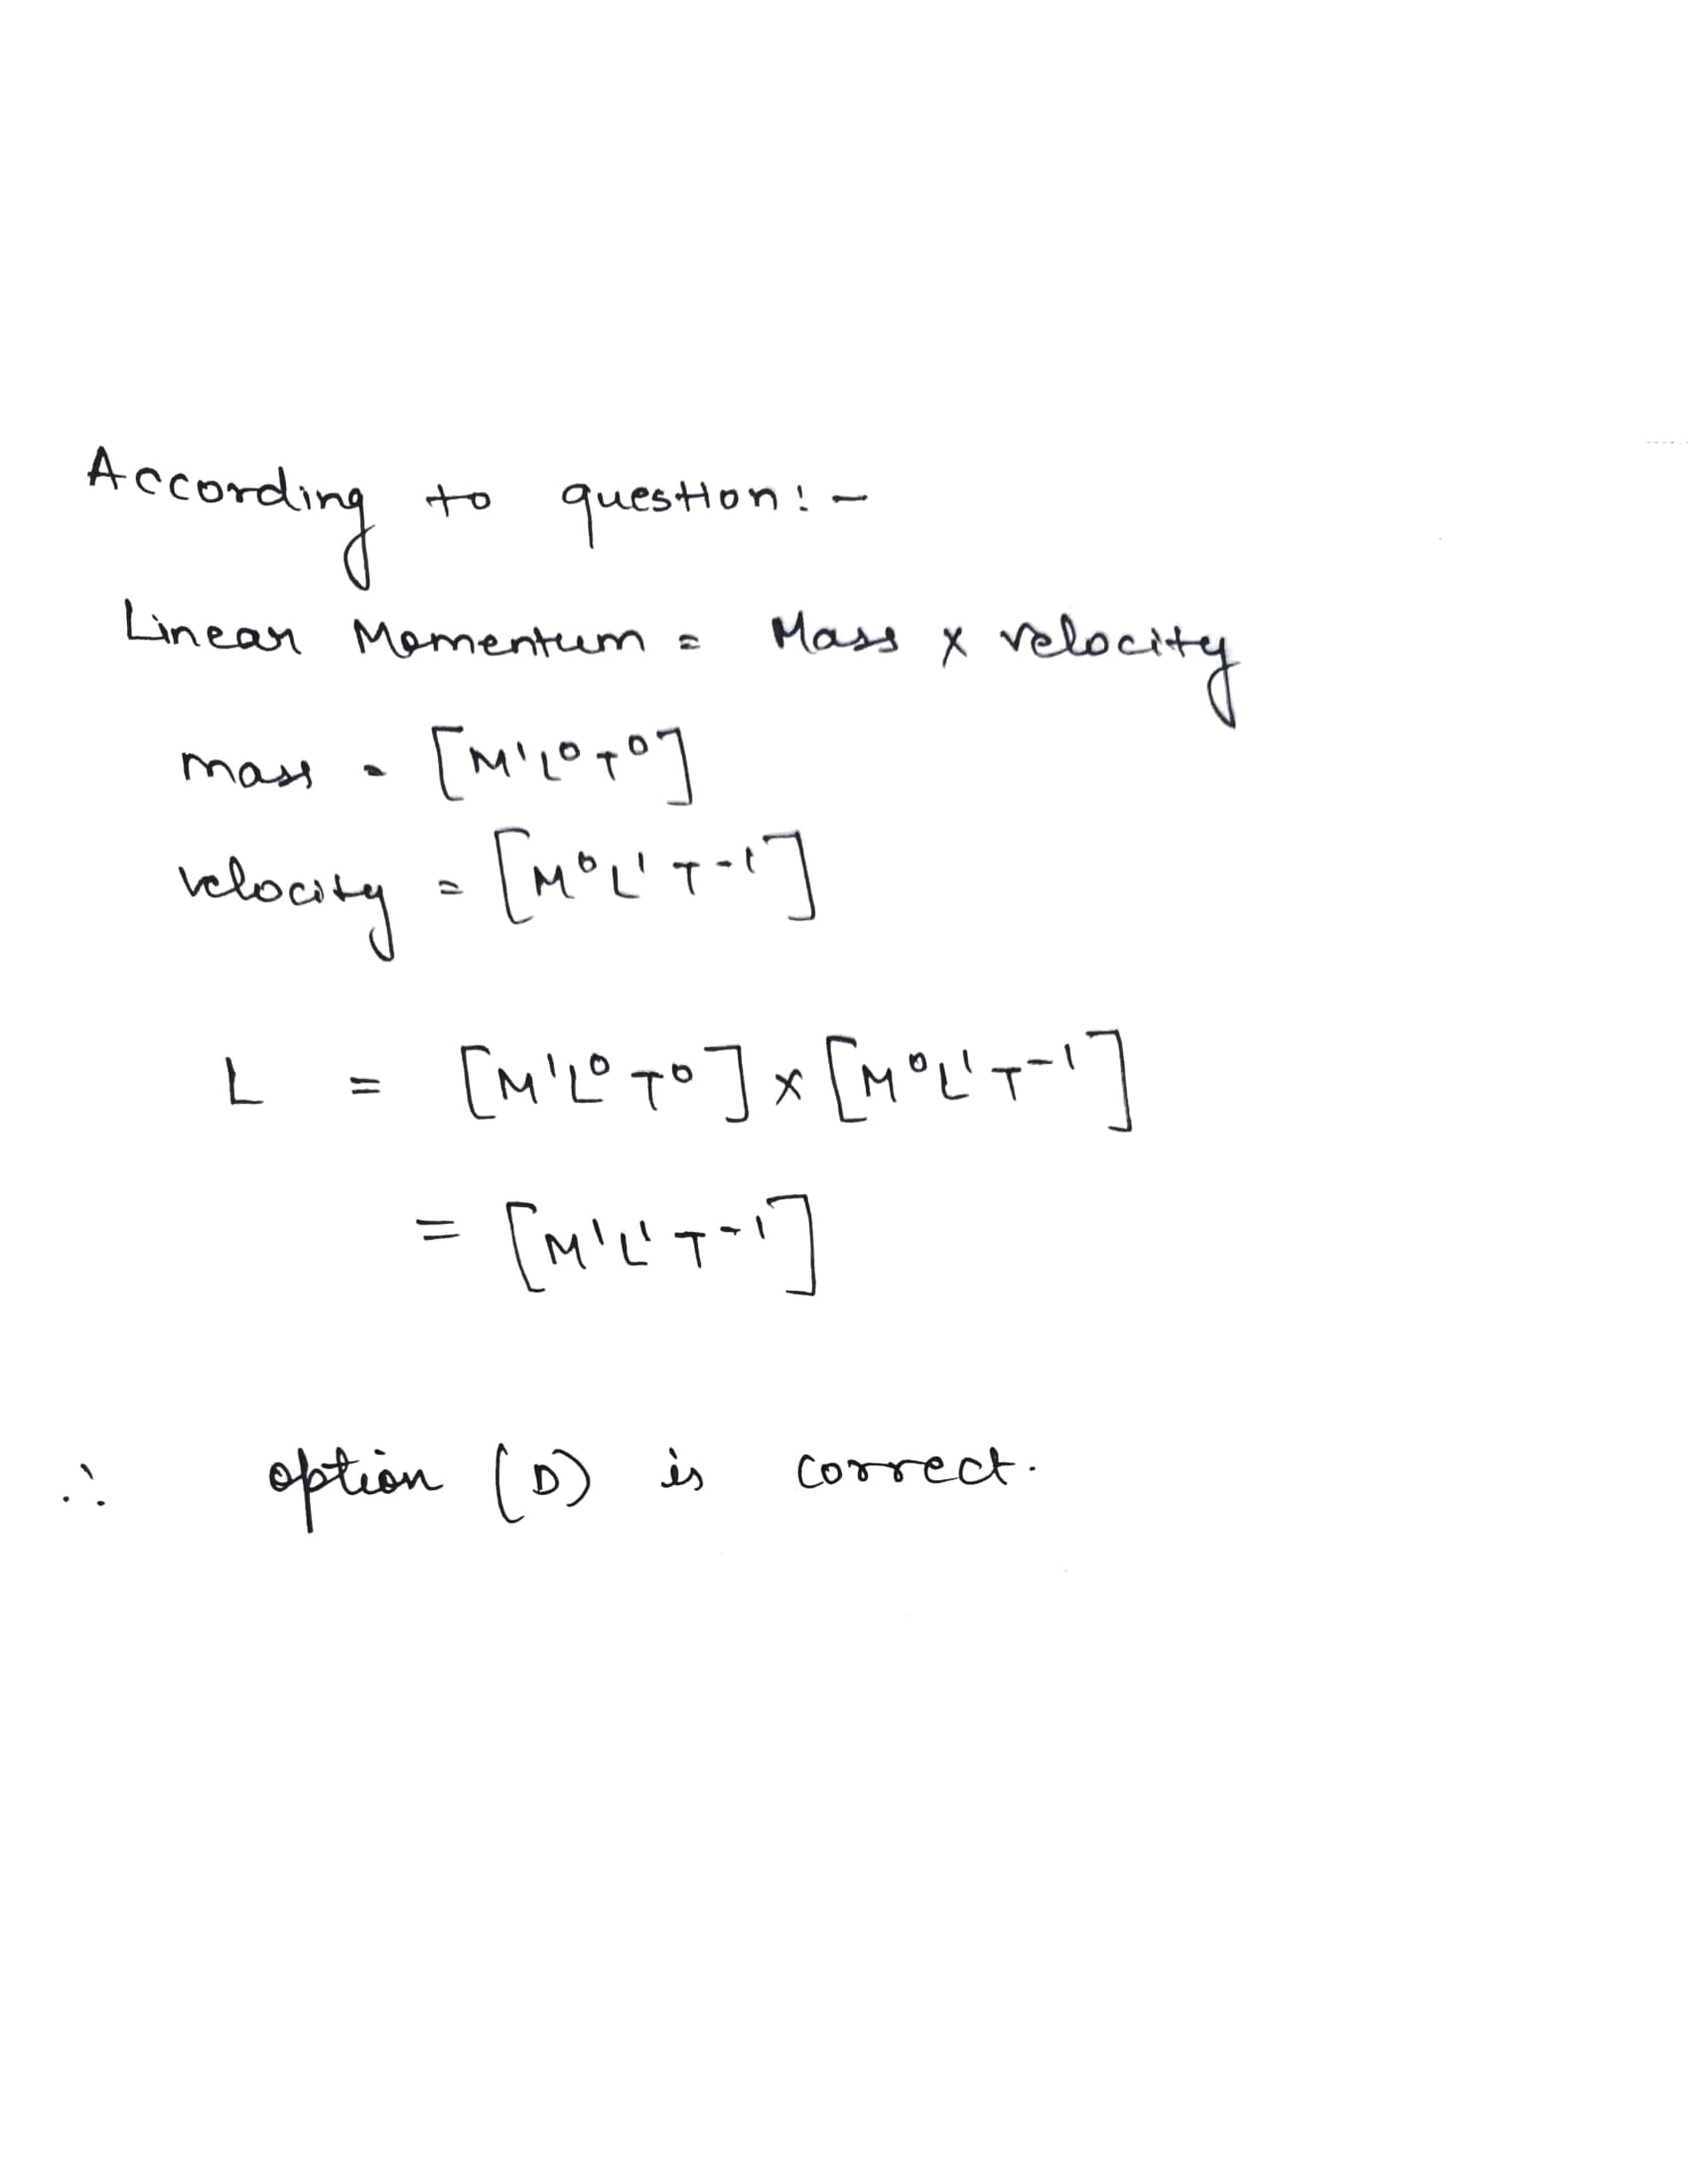 According to question:-
Linear Momentum = Mass x velocity
mass = [M¹L⁰T⁰]
velocity = [M⁰L¹T⁻¹]
L = [M¹L⁰T⁰] x [M⁰L¹T⁻¹]
= [M¹L¹T⁻¹]
∴ option (D) is correct.